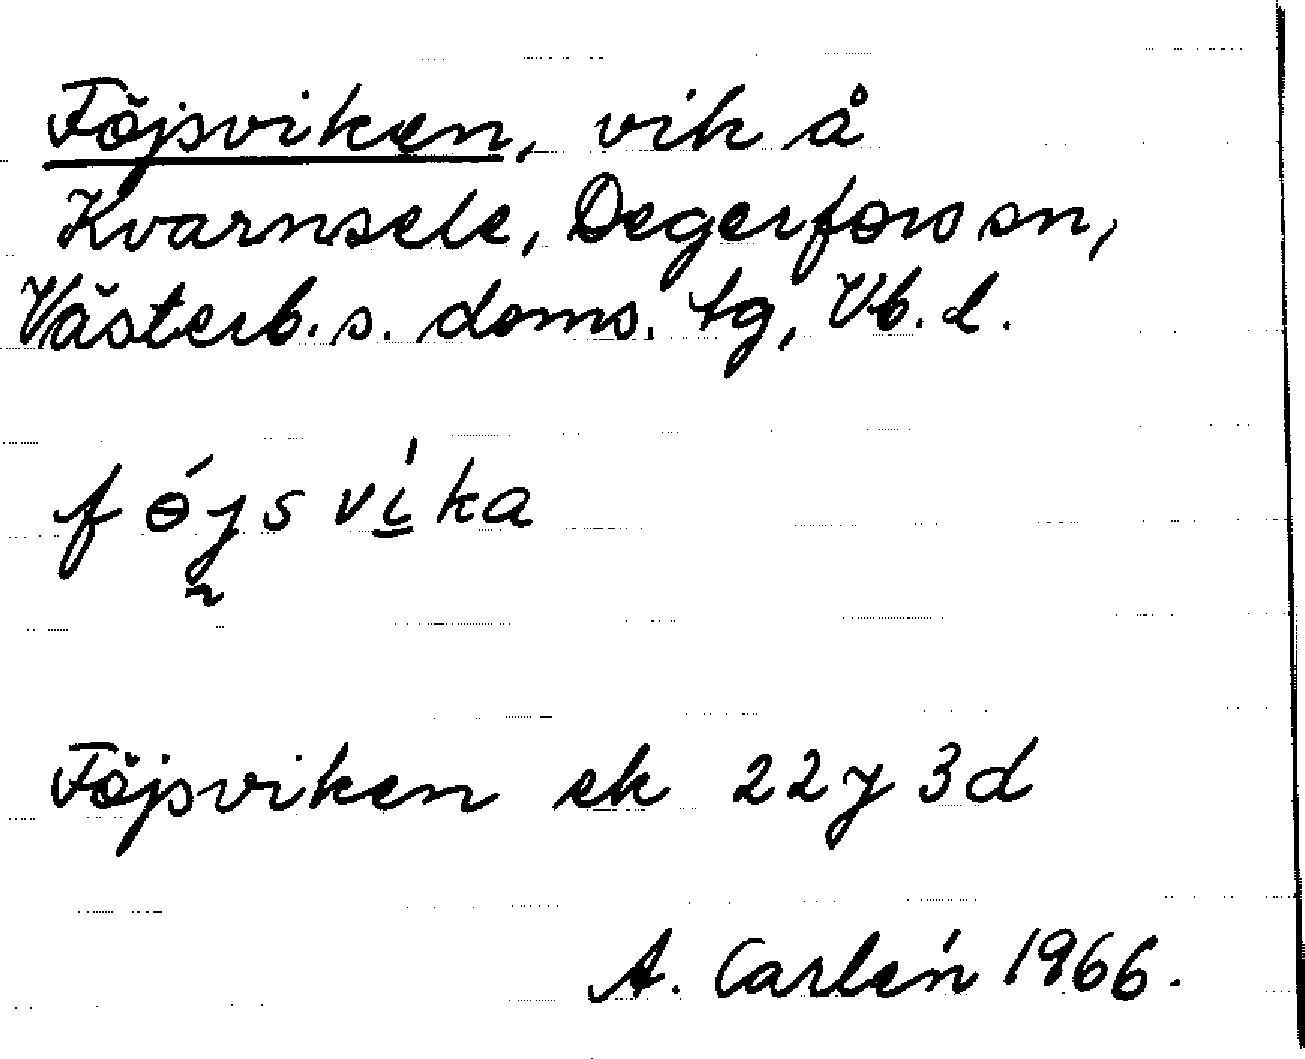 Föjsviken, vik å
Kvarnsele, Degerfors sn,
Västerb. s. doms. tg, Vb. l.
fǿysví̲ka
Föjsviken ek 22y 3d
A. Carlén 1966.